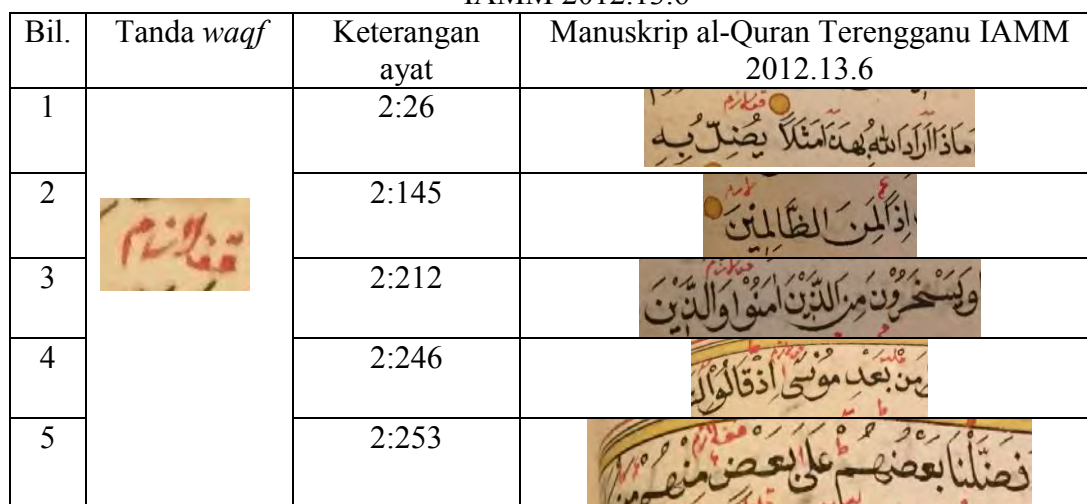 IAMM 2012.13.6
Bil. Tanda waqf Keterangan ayat Manuskrip al-Quran Terengganu IAMM 2012.13.6
1 2:26
قف لازم
ماذا أراد الله بهذا مثلا يضل به
2 2:145
لازم
إذا لمن الظالمين
قف لازم
3 2:212
قف لازم
ويسخرون من الذين امنوا والذين
4 2:246
من بعد موسى إذ قالوا
5 2:253
قف لازم
فضلنا بعضهم على بعض منهم من